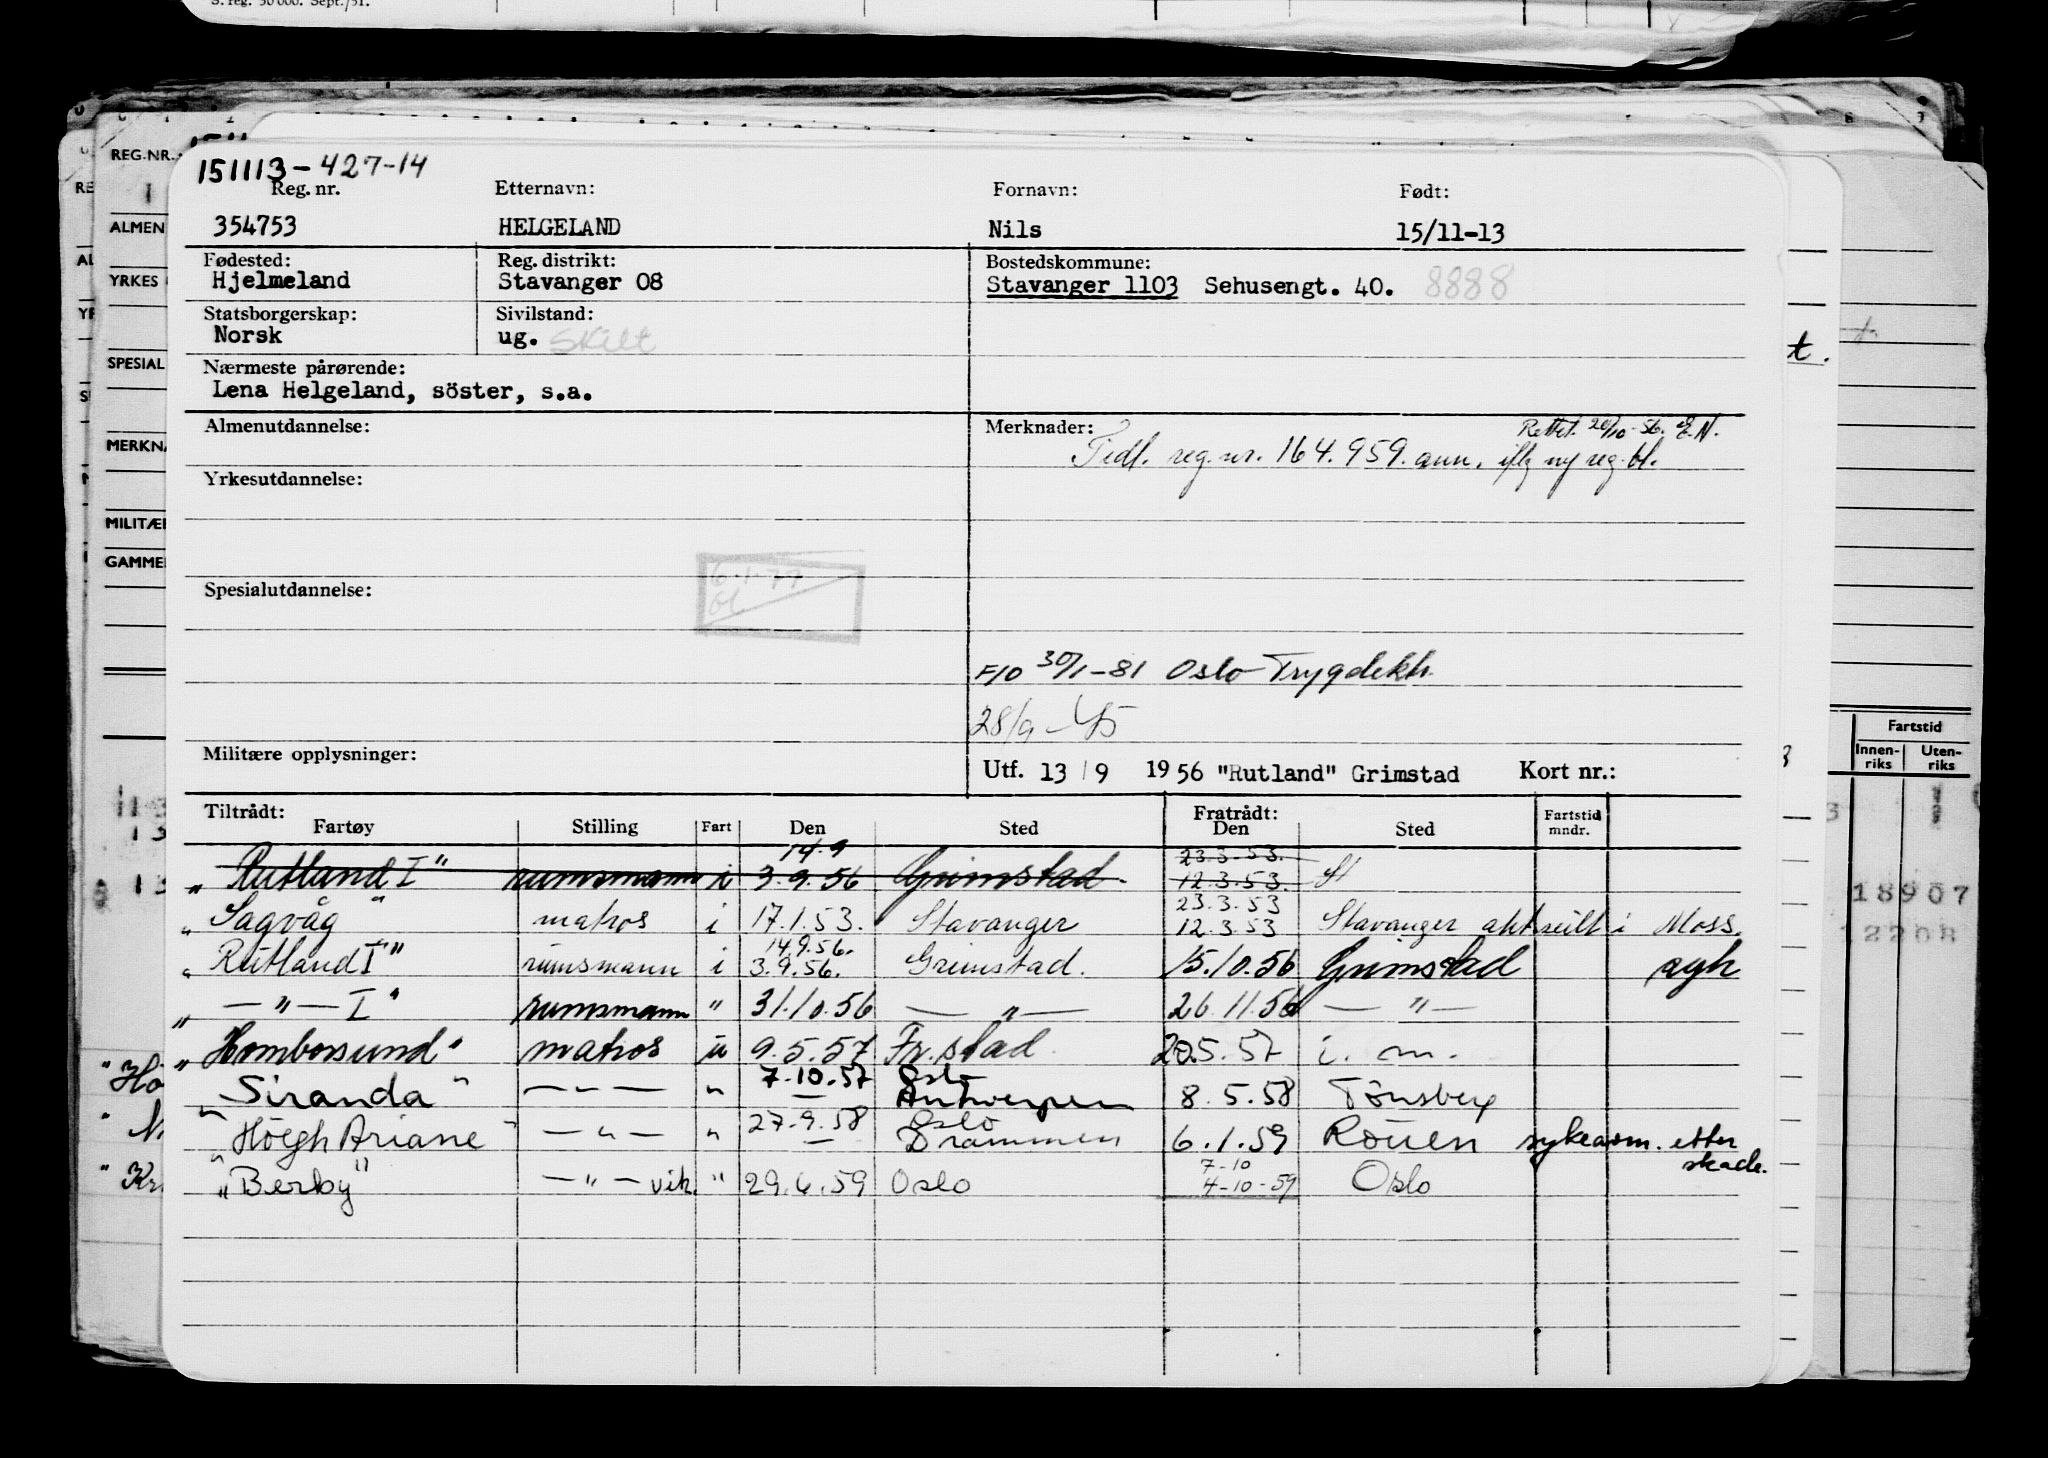 S. reg. 50 000. Sept./51.
REG.NR.
ALMEN
YRKES
SPESIAL
MERKNA
MILITÆ
GAMME
151113-427-14
Reg. nr. Etternavn: Fornavn: Født:
354753 HELGELAND Nils 15/11-13
Fødested: Reg. distrikt: Bostedskommune:
Hjelmeland Stavanger 08 Stavanger 1103 Sehusengt. 40. 8888
Statsborgerskap: Sivilstand:
Norsk ug. skilt
Nærmeste pårørende:
Lena Helgeland, söster, s.a.
Almenutdannelse: Merknader: Rettet 20/10-56. E.N.
Tidl. reg. nr. 164.959. ann. iflg ny reg. bl.
Yrkesutdannelse:
6.1.77
Spesialutdannelse:
F10 30/1-81 Oslo Trygdekh.
28/9-45
Militære opplysninger: Utf. 13/9 1956 "Rutland" Grimstad Kort nr.:
Tiltrådt: Fratrådt:
Fartøy Stilling Fart Den Sted Den Sted Fartstid mndr.
14.9 23.3.53.
„Rutland I" rumsmann i 3.9.56 Grimstad 12.3.53 St
23.3.53
„Sagvåg" matros i 17.1.53. Stavanger 12.3.53 Stavanger i Moss.
14.9.56.
„Rutland I" rumsmann i 3.9.56. Grimstad. 15.10.56 Grimstad agh
„—"—I" rumsmann " 31.10.56 —"— 26.11.56 —"—
„Homborsund" matros u 9.5.57 Fr.stad 20.5.57 i. m.
7.10.57 Oslo
„Siranda" —"— " — Antwerpen 8.5.58 Tønsberg
27.9.58 Oslo
„Höegh Ariane" —"— " — Drammen 6.1.59 Rouen sykeavm. etter skade.
7-10
„Berby" —"— vik. " 29.6.59 Oslo 4-10-59 Oslo
Fartstid
Innenriks Utenriks
18907
12208